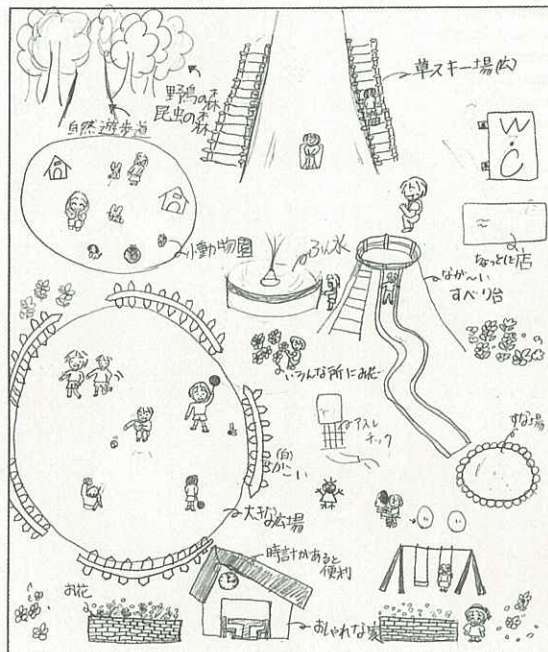 草スキー場(広)
野鳥の森
昆虫の森
自然遊歩道
W.C
小動物園
ふん水
ちょっとした店
なが〜い
すべり台
いろんな所にお花
アスレ
チック
すな場
(白)
かこい
大きな広場
時計があると
便利
お花
おしゃれな家